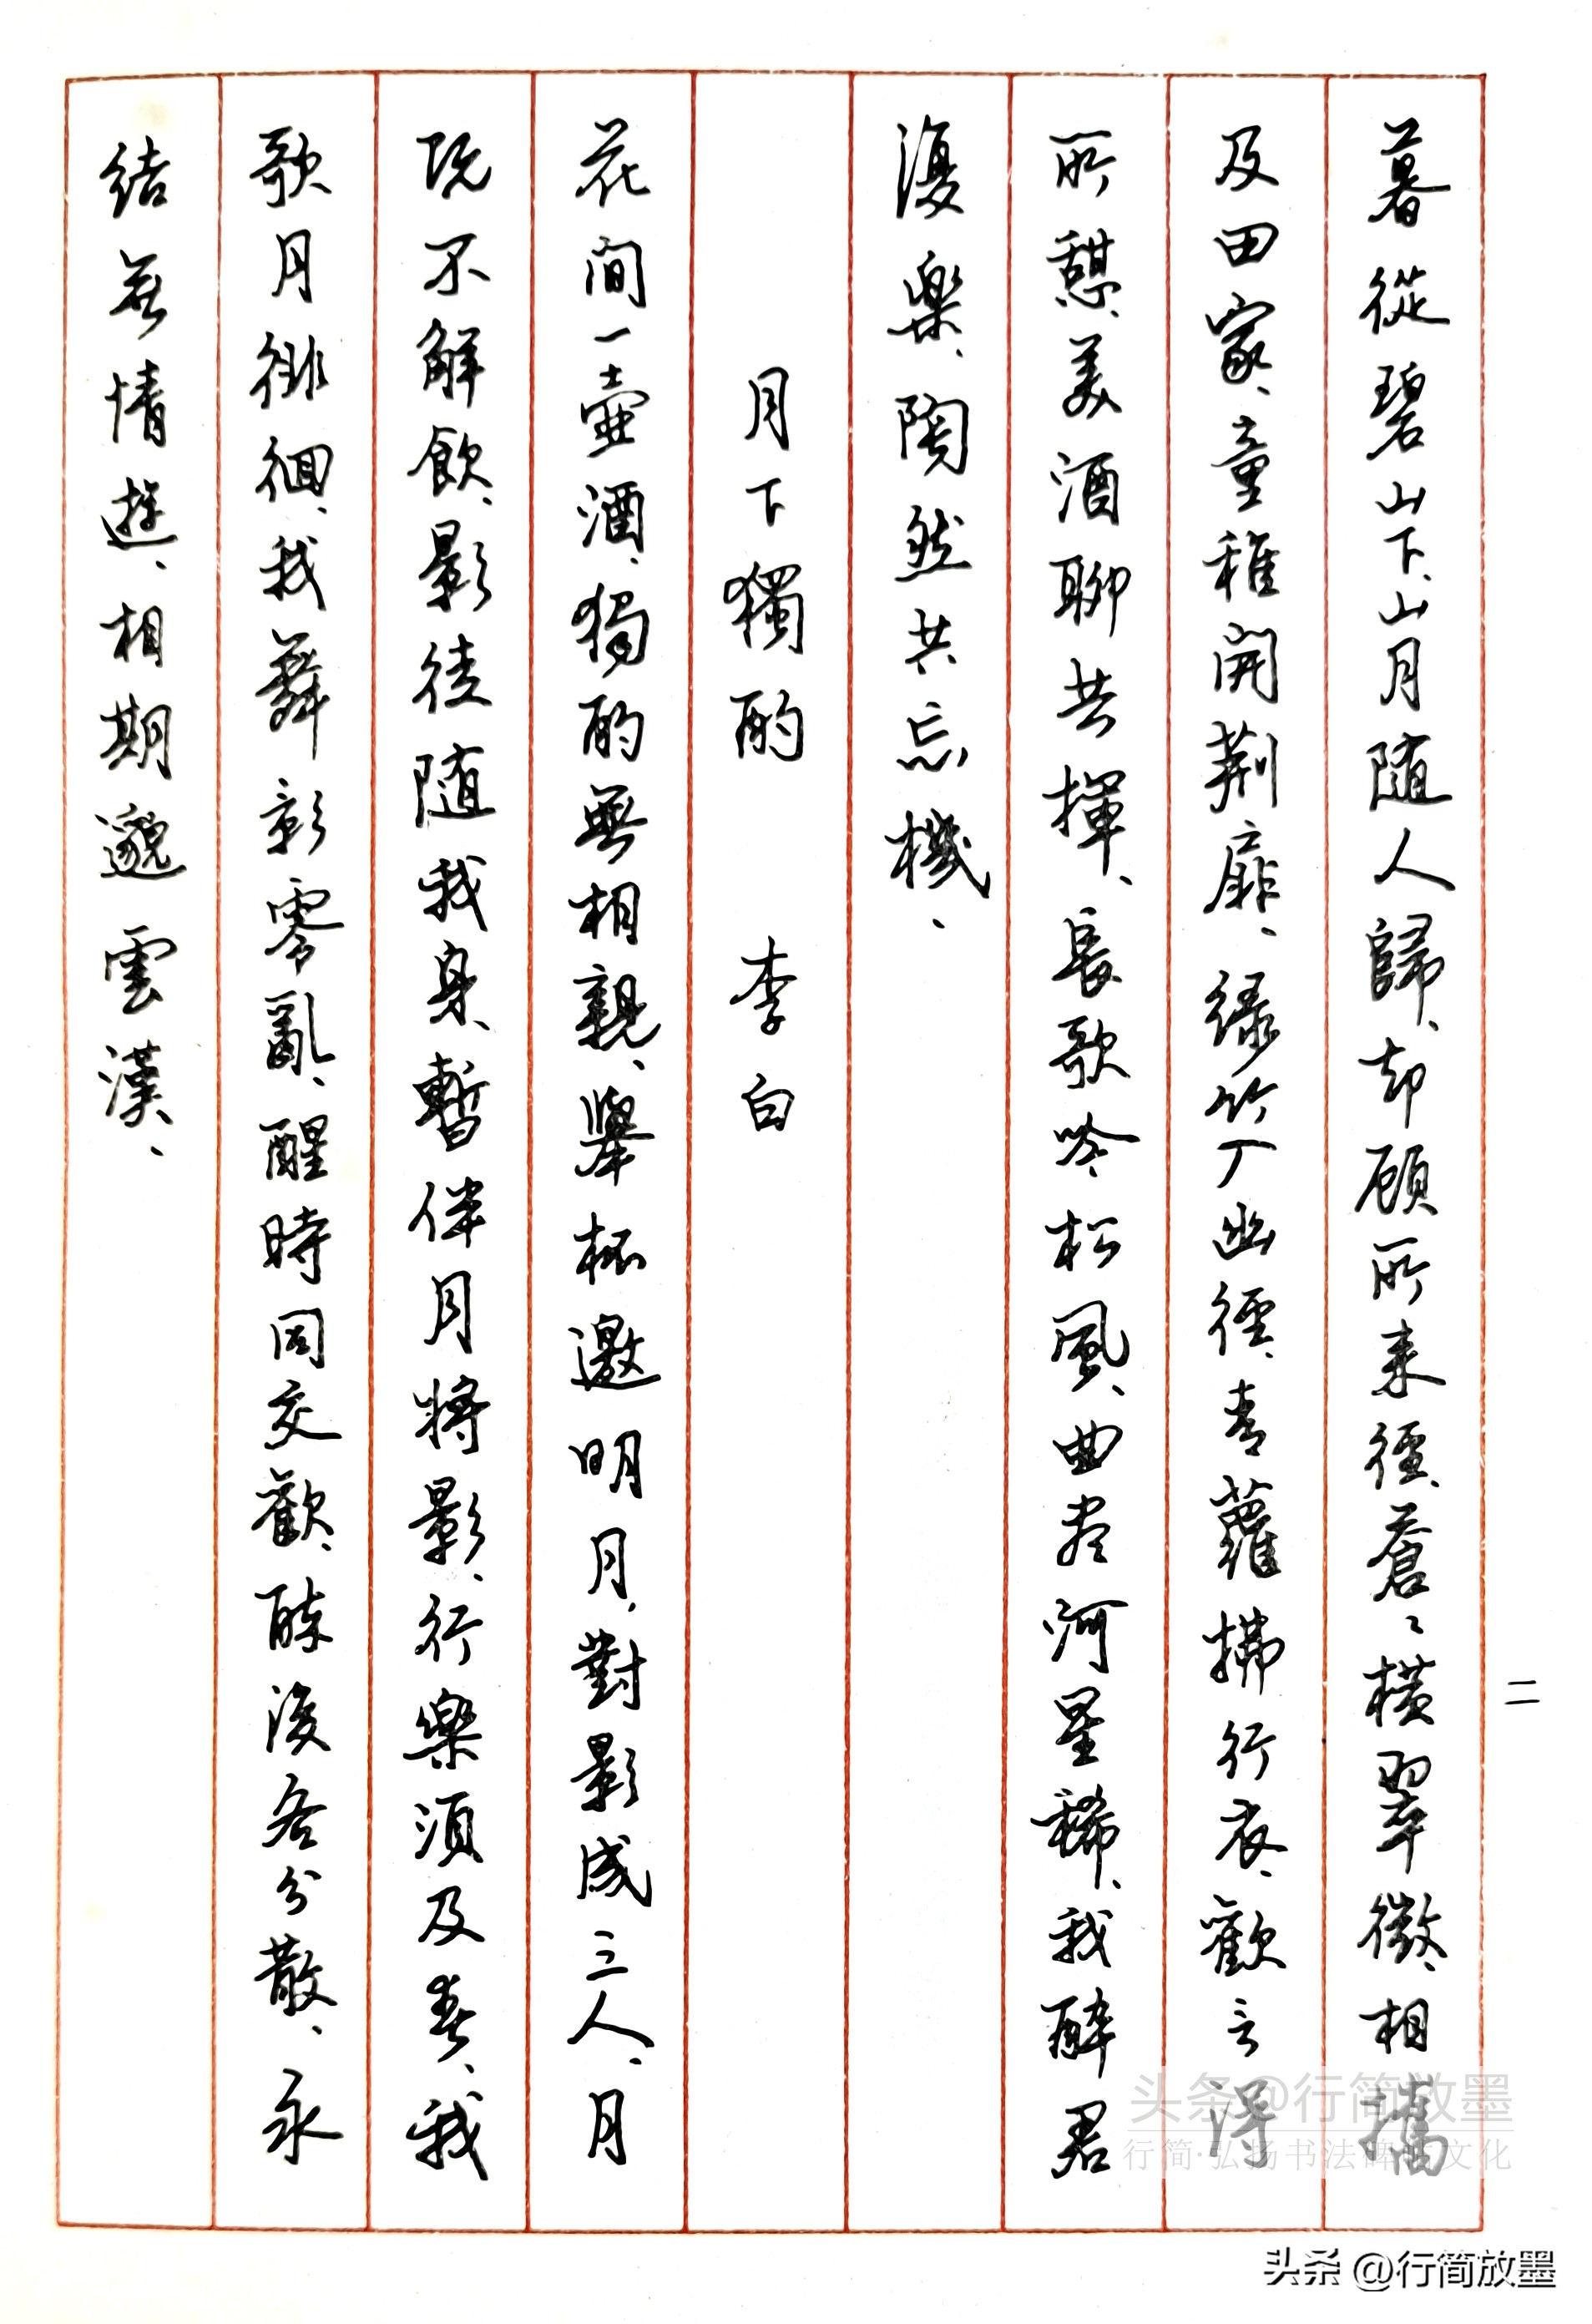 二
暮從碧山下、山月随人歸、却顾所来徑、蒼〻横翠微、相攜
及田家、童稚開荆扉、緑竹入幽徑、青蘿拂行衣、歡言得
所憩、美酒聊共揮、長歌吟松風、曲尽河星稀、我醉君
復樂、陶然共忘機、
月下獨酌 李白
花间一壺酒、獨酌無相親、舉杯邀明月，對影成三人、月
既不解飲、影徒随我身、暫伴月將影、行樂須及春、我
歌月徘徊、我舞影零亂、醒時同交歡、醉後各分散、永
结無情遊、相期邈雲漢、
头条@行简放墨
行简·弘扬书法文化
头条 @行简放墨